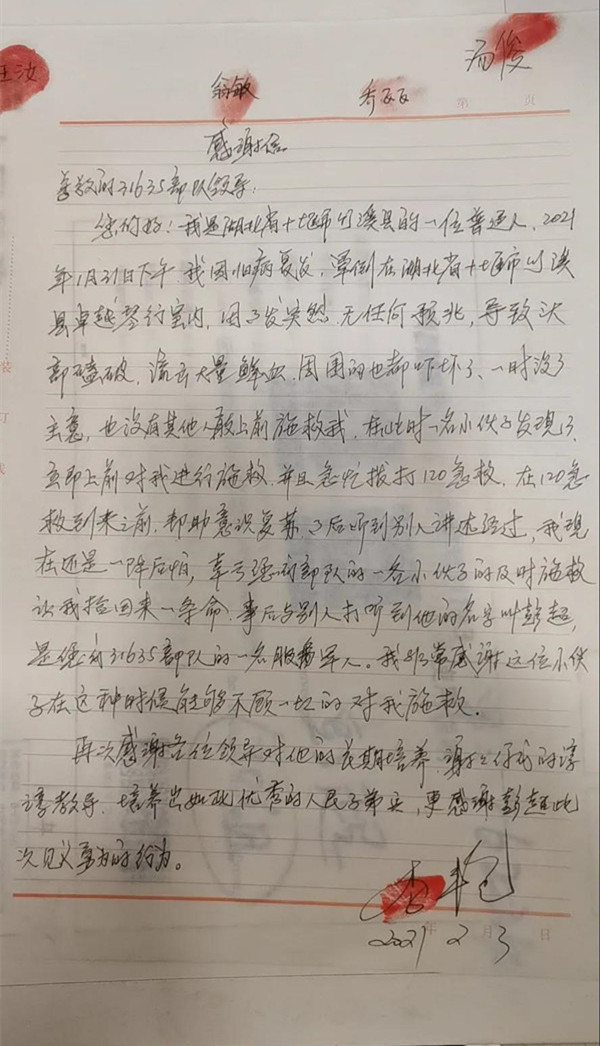 汤俊
王汝
翁敏
第 页
感谢信
尊敬的31635部队领导：
您们好！我是湖北省十堰市竹溪县的一位普通人，2021
年1月31日下午，我因旧病复发，晕倒在湖北省十堰市竹溪
县卓越琴行室内，因事发突然，无任何预兆，导致头
部磕破，流出大量鲜血，周围的也都吓坏了、一时没了
主意，也没有其他人敢上前施救我，在此时一名小伙子发现了，
立即上前对我进行施救，并且急忙拨打120急救，在120急
救到来之前，帮助意识复苏，事后听到别人讲述经过，我现
在还是一阵后怕，幸亏您们部队的一名小伙子的及时施救
让我捡回来一条命，事后与别人打听到他的名字叫彭超，
是您们31635部队的一名服役军人。我非常感谢这位小伙
子在这种时候能够不顾一切的对我施救。
再次感谢各位领导对他的长期培养，谢谢你们的谆
谆教导，培养出如此优秀的人民子弟兵，更感谢彭超此
次见义勇为的行为。
李艳
2021年2月3日